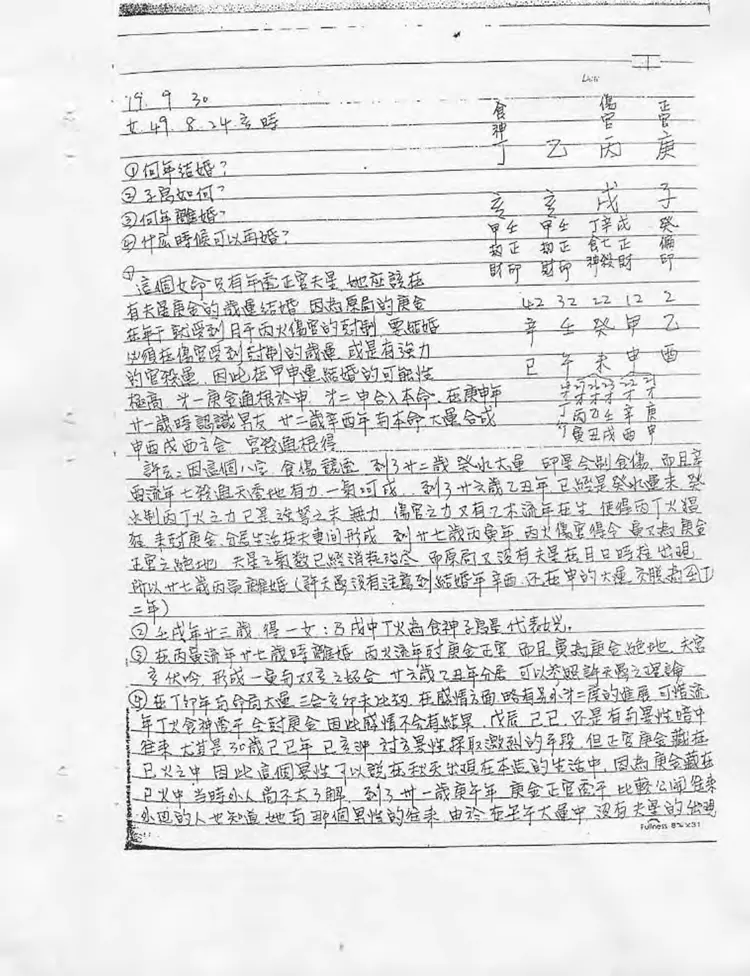 79. 9. 30
女. 49. 8. 24. 亥時
食神 傷官 正官
丁 乙 丙 庚
亥 亥 戌 子
甲壬 甲壬 丁辛戊 癸
劫正 劫正 食七正 偏
財印 財印 神殺財 印
42 32 22 12 2
辛 壬 癸 甲 乙
巳 午 未 申 酉
丁丙乙 辛庚
寅丑戌酉申
①何年結婚?
②子息如何?
③何年離婚?
④什麼時候可以再婚?
①
這個女命只有年透正官夫星, 她應該在
有夫星庚金的歲運結婚, 因為原局的庚金
在年干就受到月干丙火傷官的尅制, 要結婚
必須在傷官受到尅制的歲運, 或是有強力
的官殺運, 因此在甲申運結婚的可能性
極高, 第一庚金通根於申, 第二申合入本命, 在庚申年
廿一歲時認識男友, 廿二歲辛酉年与本命大運合成
申酉戌西方金, 官殺通根得
許云: 因這個八字, 食傷競透, 到了廿二歲癸水大運, 印星合制食傷, 而且辛
酉流年七殺通天透地有力, 一氣呵成, 到了廿六歲乙丑年已經是癸水運末, 癸
水制丙丁火之力已是強弩之末, 無力, 傷官之力又有乙木流年在生, 使得丙丁火猖
狂, 來尅庚金, 分居生活在夫妻間形成, 到廿七歲丙寅年, 丙火傷官得令, 寅又為庚金
正官之絕地, 夫星之氣數已經消耗殆盡, 而原局又沒有夫星在月日時柱出現,
所以廿七歲丙寅離婚(許夫醫沒有注意到結婚年辛酉, 还在申的大運, 交脫
二年)
②壬戌年廿三歲, 得一女: 乃戌中丁火為食神子息星代表女兒.
③在丙寅流年廿七歲時離婚, 丙火流年尅庚金正官, 而且寅為庚金絕地, 夫宮
亥伏吟, 形成一寅与双亥之妬合, 廿六歲乙丑年分居, 可以參照許夫醫之理論
④在丁卯年与命局大運三合亥卯未比劫, 在感情方面略有另外第二度的進展, 可惜流
年丁火食神透干合尅庚金, 因此感情不会有結果, 戊辰、己巳, 还是有与異性暗中
往來, 尤其是30歲己巳年, 巳亥沖, 討方異性採取激烈的手段, 但正官庚金藏在
巳火之中, 因此這個異性可以說在秋天出現在本造的生活中, 因為庚金藏在
巳火中, 當時外人尚不太了解, 到了卅一歲庚午年, 庚金正官透干, 比較公開往來
外邊的人也知道她有那個異性的往來, 由於在壬午大運中, 沒有夫星的出現
Fullness B7K×31